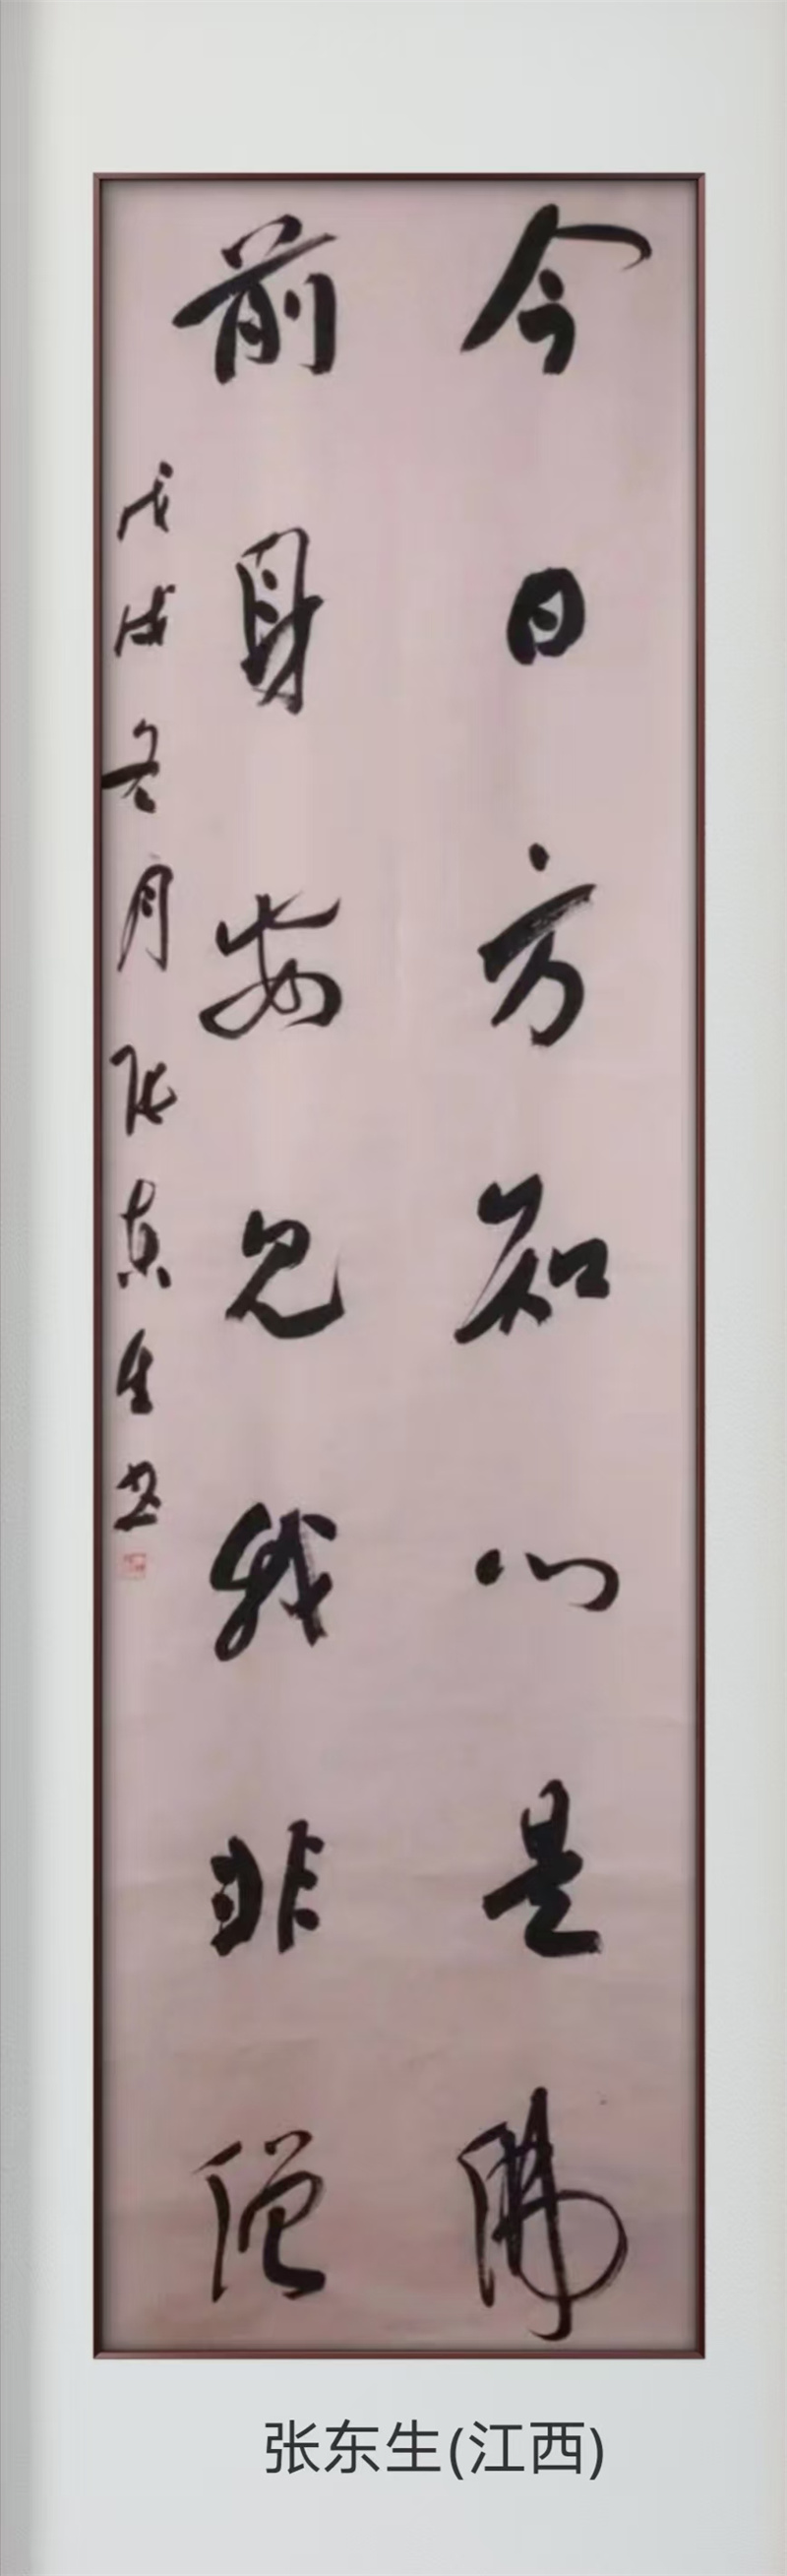 今日方知心是佛
前身安见我非僧
戊戌冬月张东生书
张东生(江西)